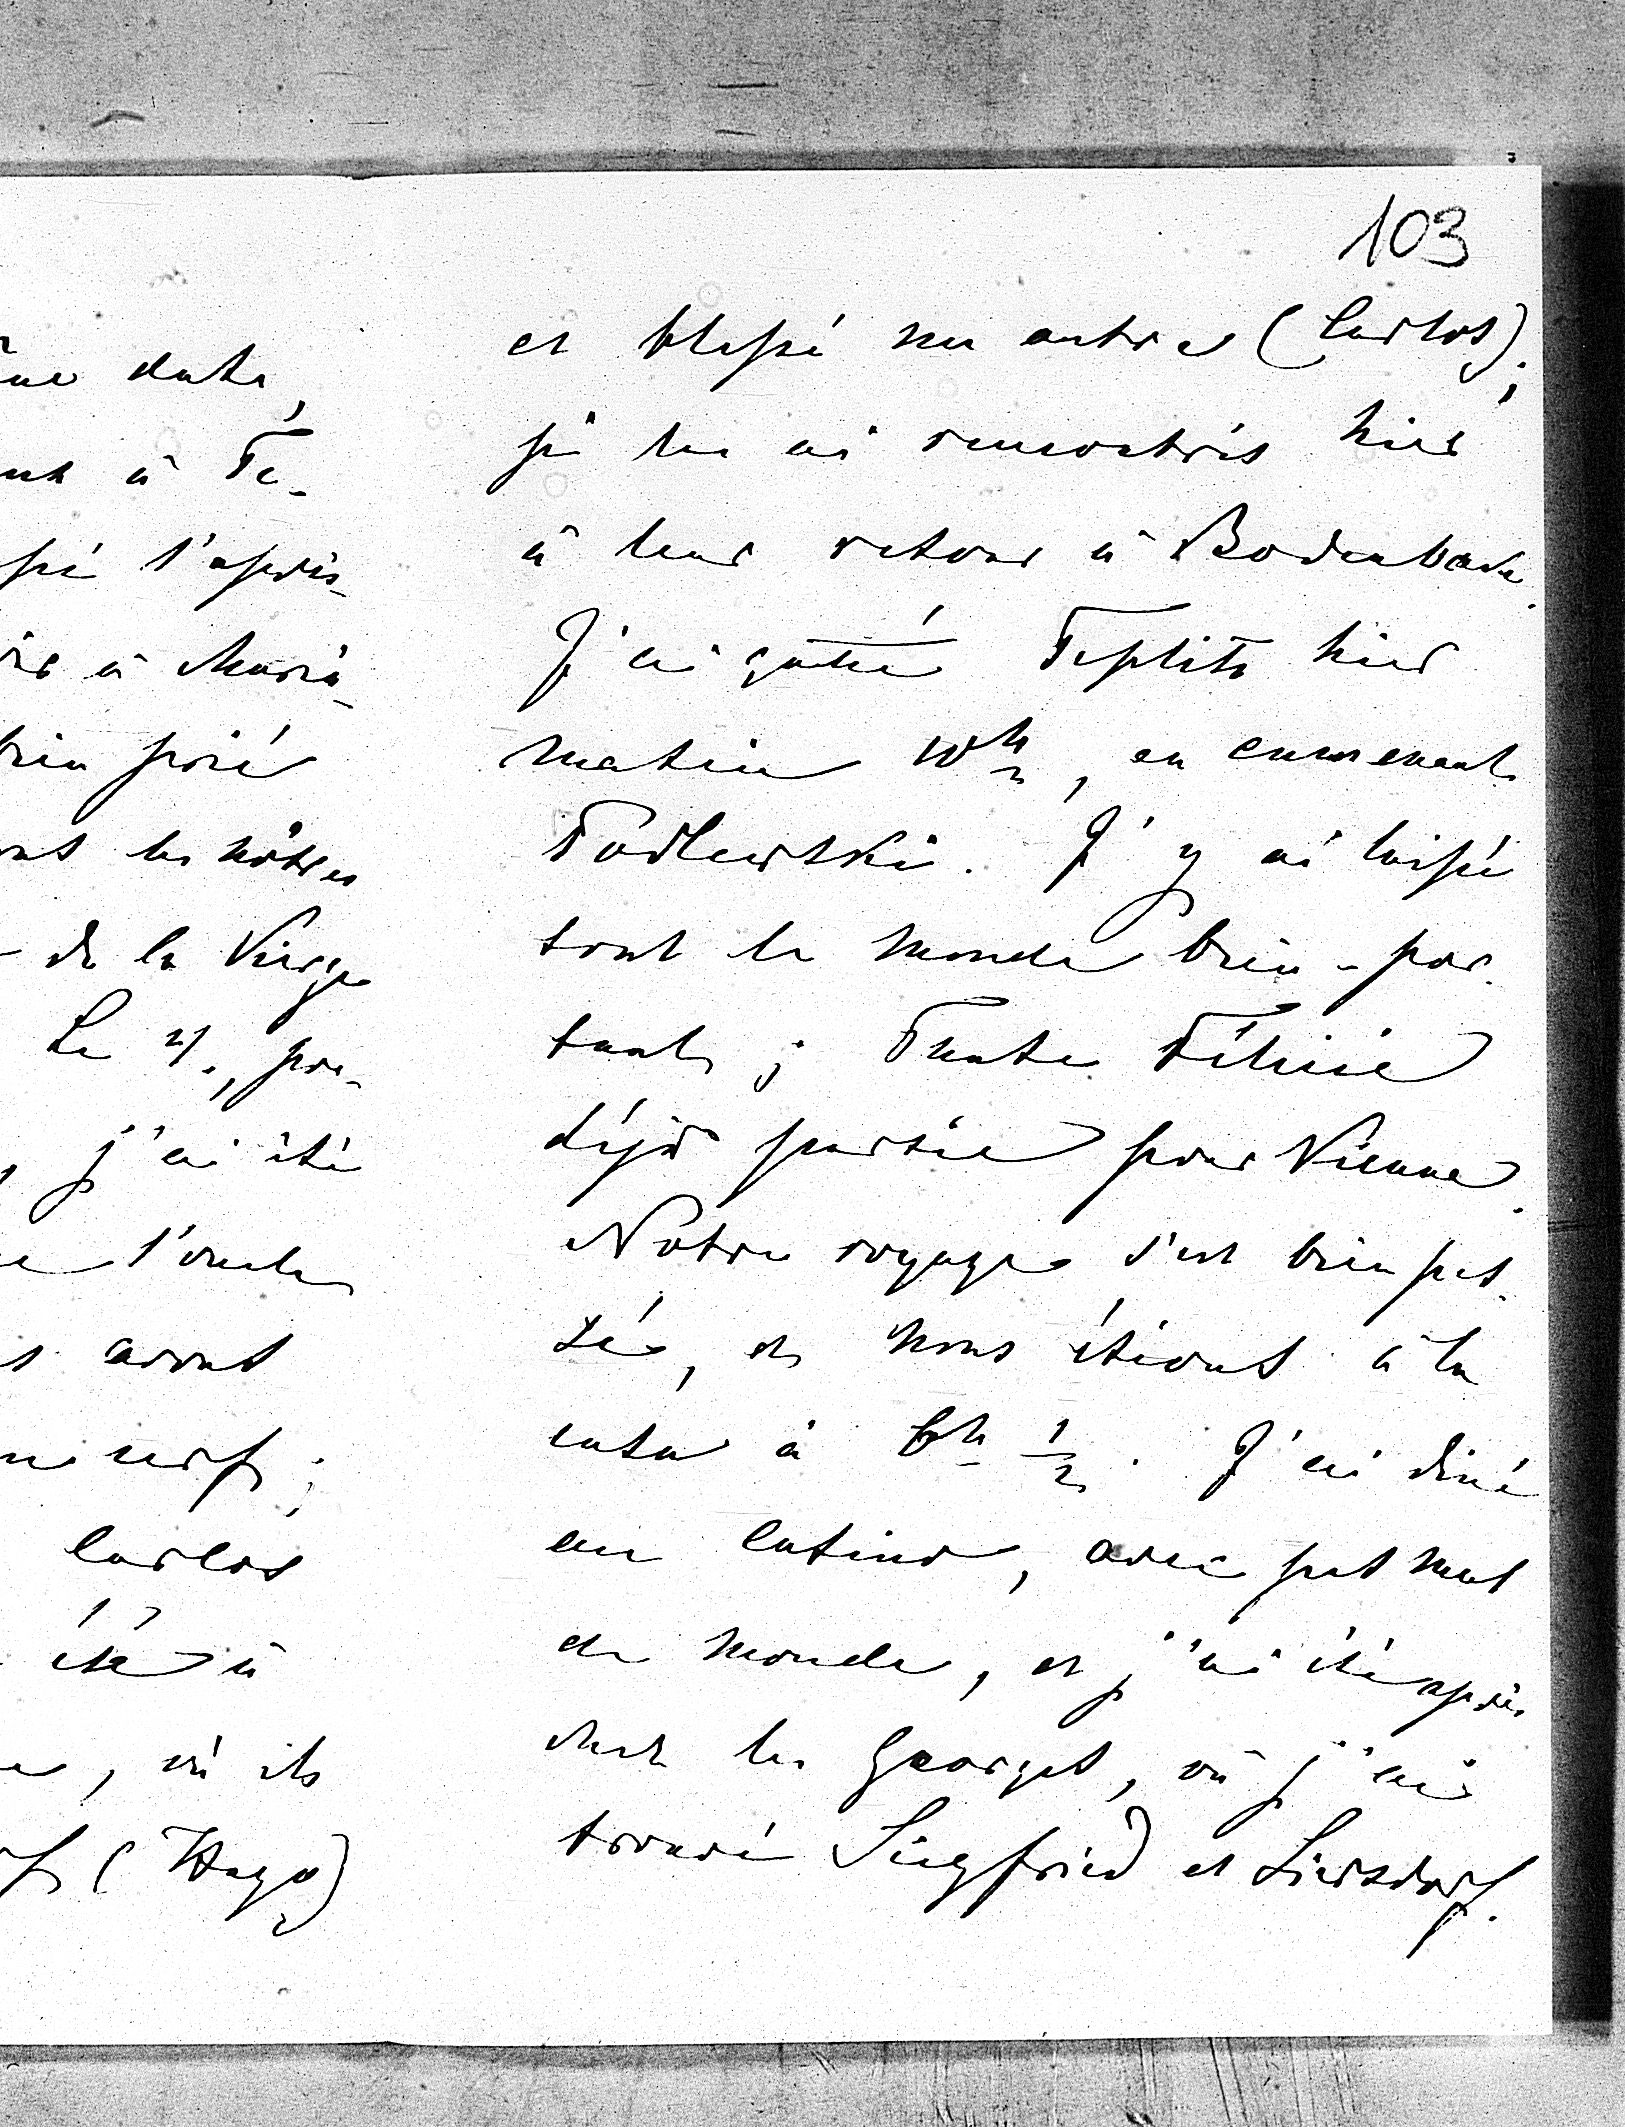 103
me date,
à Te-
sé l'après-
à Maria-
bien prié
les nôtres
de la Vierge
Le 21., pre-
j'ai été
l'oncle
avons
cerf;
Carlos
été à
, où ils
(Hugo)
et blessé un autre (Carlos);
je les ai rencontrés hier
à leur retour à Bodenbach.
J'ai quitté Teplitz hier
matin 10h, en emmenant
Podlewski. J'y ai laissé
tout le monde bien-por-
tant; Tante Félicie
déjà partie pour Vienne.
Notre voyage s'est bien pas-
sé, et nous étions à la
casa à 6h 1/2. J'ai dîné
au Casino, avec pas mal
de monde, et j'ai été après
chez les Georges, où j'ai
trouvé Siegfried et Liersdorf.